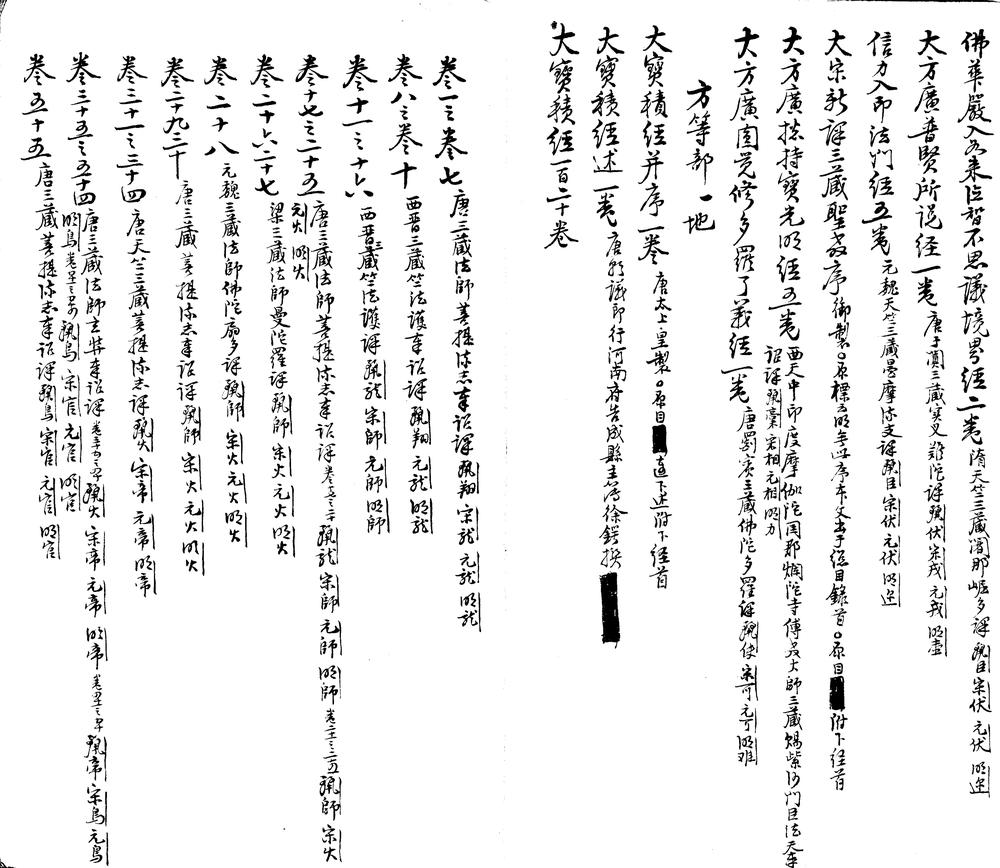 佛華嚴入如来位智不思議境界經二卷 隋天竺三藏闍那崛多譯 麗目 宋伏 元伏 明迩
大方廣普賢所説经一卷 唐于闐三藏实叉難陀譯 麗伏 宋戎 元戎 明壹
信力入印法門經五卷 元魏天竺三藏曇摩流支譯 麗臣 宋伏 元伏 明迩
大宋新譯三藏聖教序 御製○原標云明無此序本文出于總目錄首○原目 附下经首
大方廣揔持寶光明经五卷 西天中印度摩伽陀国那爛陀寺傳教大師三藏賜紫沙門臣法天奉
詔譯 麗稾 宋相 元相 明力
大方廣圓覚修多羅了義经一卷 唐罽賓三藏佛陀多羅譯 麗使 宋可 元可 明难
方等部一地
大寶積经并序一卷 唐太上皇製○原目 直下述附下经首
大寶積经述一卷 唐朝議郎行河南府告成縣主簿徐鍔撰
大寶積经一百二十卷
卷一之卷七 唐三藏法師菩提流志奉詔譯 麗翔 宋龍 元龍 明龍
卷八之卷十 西晋三藏竺法護奉詔譯 麗翔 元龍 明龍
卷十一之十六 西晋三藏竺法護譯 麗龍 宋師 元師 明師
卷十七之三十五 唐三藏法師菩提流志奉詔譯 卷十七之二十 麗龍 宋師 元師 明師 卷二十一之三五 麗師 宋火
元火 明火
卷二十六二十七 梁三藏法師曼陀羅譯 麗師 宋火 元火 明火
卷二十八 元魏三藏法師佛陀扇多譯 麗師 宋火 元火 明火
卷二十九三十 唐三藏菩提流志奉詔譯 麗師 宋火 元火 明火
卷三十一之三十四 唐天竺三藏菩提流志譯 麗火 宋帝 元帝 明帝
卷三十五之五十四 唐三藏法師玄奘奉詔譯 麗火 宋帝 元帝 明帝 麗帝 宋鳥 元鳥
明鳥 麗鳥 宋官 元官 明官
卷五十五 唐三藏菩提流志奉詔譯 麗鳥 宋官 元官 明官